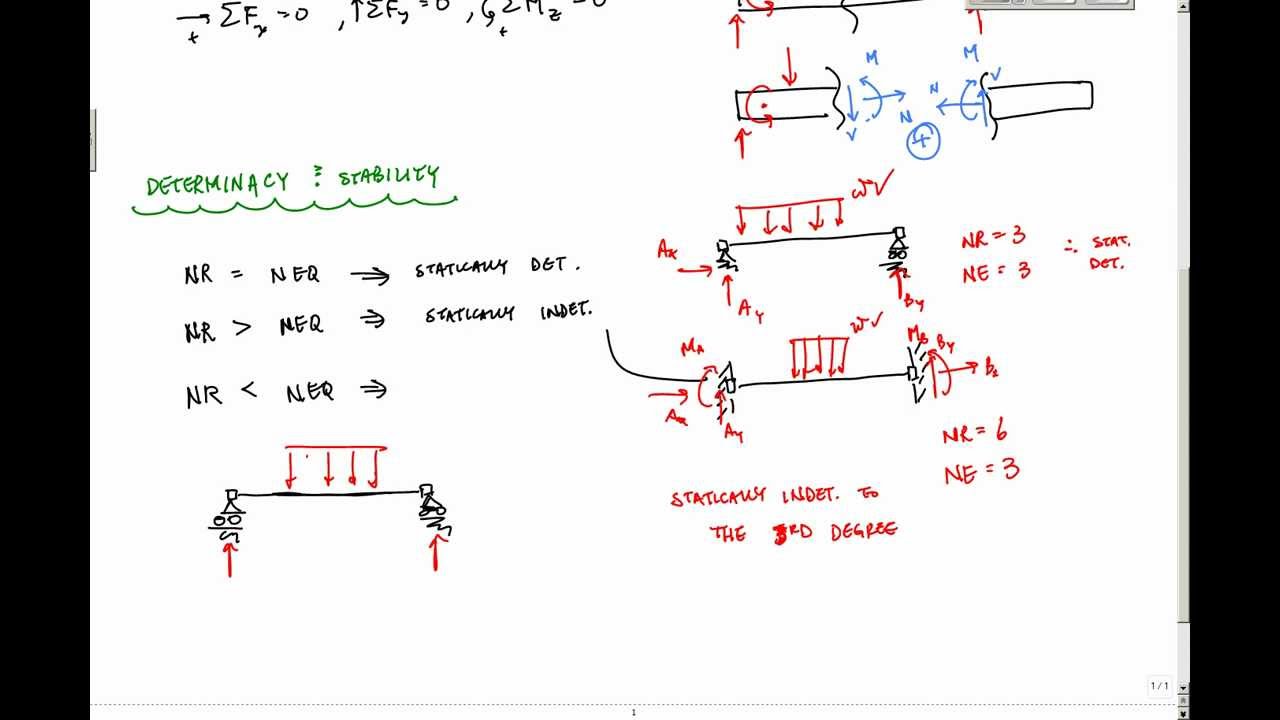 → + ΣFx = 0 , ↑ΣFy = 0 , + ΣMz = 0
M
M
V
N
N
V
+
DETERMINACY & STABILITY
NR = NEQ ⟶ STATICALLY DET.
NR > NEQ ⇒ STATICALLY INDET.
NR < NEQ ⇒
w ✓
Ax
Ay
By
NR = 3
NE = 3
∴ STAT.
DET.
w ✓
MA
Ax
Ay
MB
By
Bx
NR = 6
NE = 3
STATICALLY INDET. TO
THE 3RD DEGREE
1 / 1
1